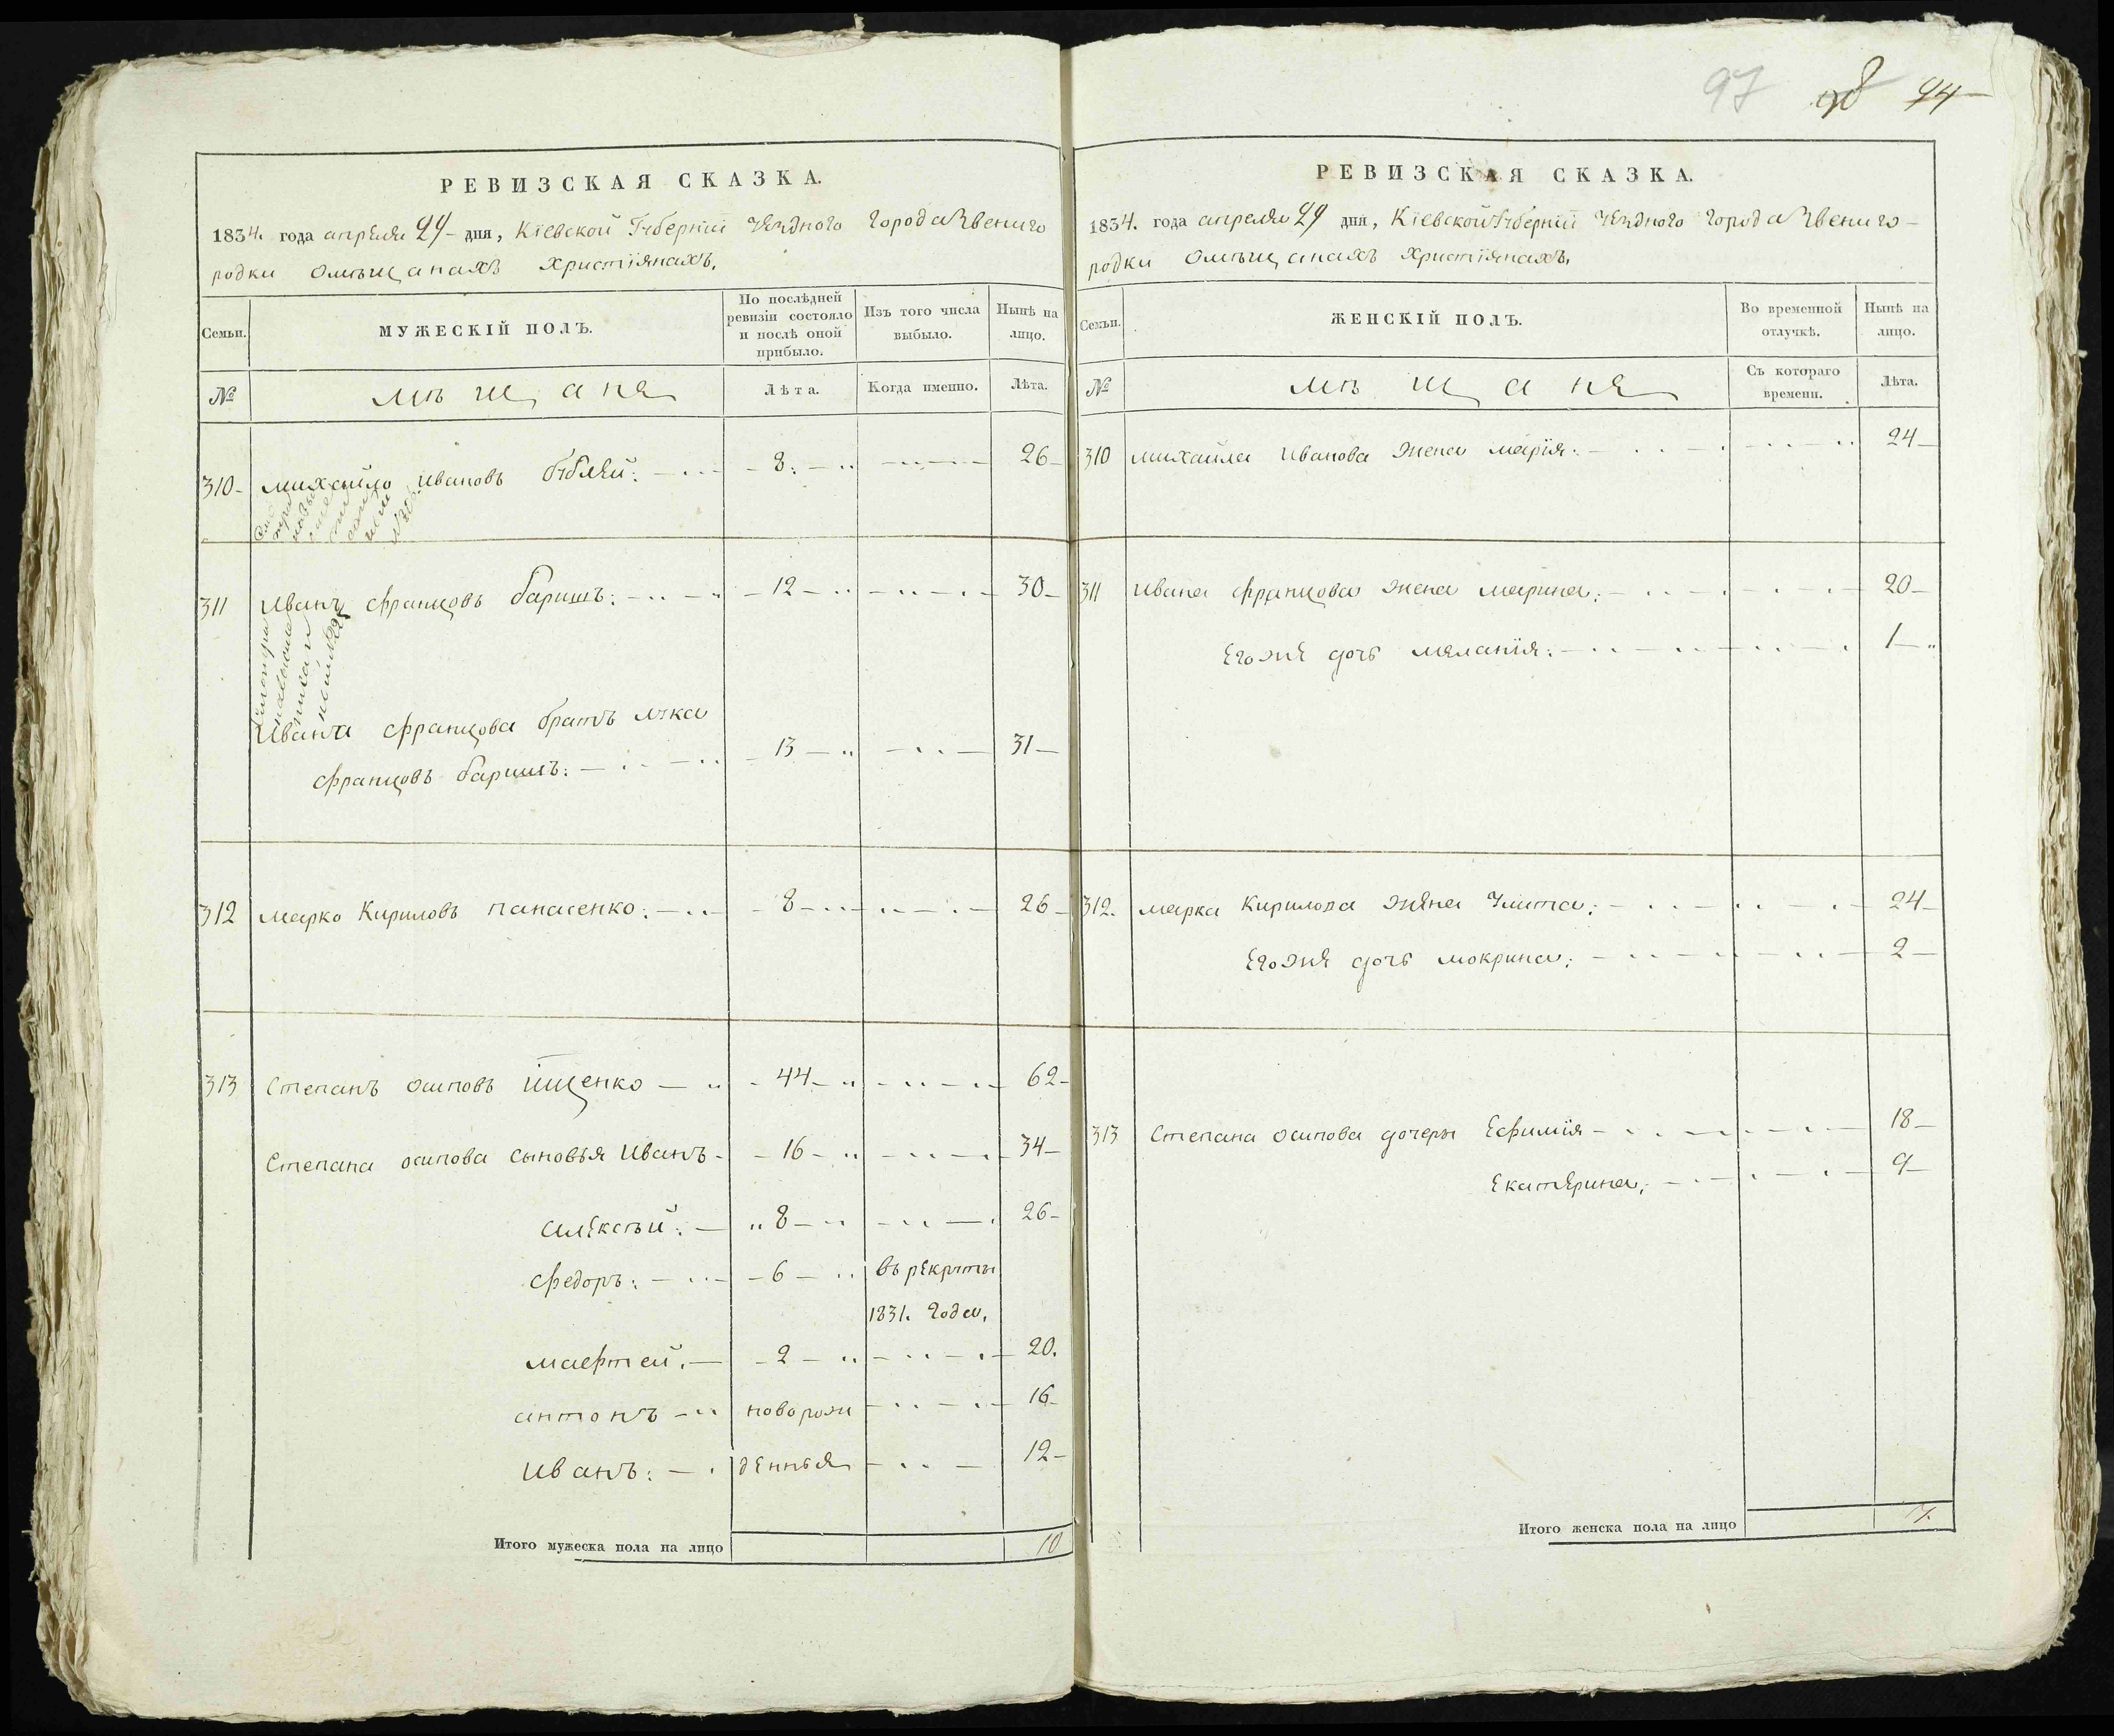 97 98 94
РЕВИЗСКАЯ СКАЗКА.
1834. года апреля 29 дня, Кіевской Губерніи уѣзднаго города Звениго
родки о мѣщанахъ христіянахъ.
Семьи. МУЖЕСКІЙ ПОЛЪ. По послѣдней ревизіи состояло и послѣ оной прибыло. Изъ того числа выбыло. Нынѣ на лицо.
№ мѣщане Лѣта. Когда именно. Лѣта.
310 Михайло Ивановъ 8. 26
311 Иванъ Францовъ Баришъ: 12 30
Ивана Францова братъ Лука
Францовъ Баришъ: 13 31
312 Марко Кириловъ Панасенко: 8 26
313 Степанъ Осиповъ Ищенко 44 62
Степана Осипова сыновья Иванъ 16 34
Алексѣй: 8 26
Федоръ: 6 въ рекруты
1831. года,
Мафтей. 2 20.
Антонъ новорож 16
Иванъ: денныя 12
Итого мужеска пола на лицо 10
РЕВИЗСКАЯ СКАЗКА.
1834. года апреля 29 дня, Кіевской Губерніи уѣзднаго города Звениго-
родки о мѣщанахъ христіянахъ.
Семьи. ЖЕНСКІЙ ПОЛЪ. Во временной отлучкѣ. Нынѣ на лицо.
№ мѣщане Съ котораго времени. Лѣта.
310 Михайла Иванова жена Марія: 24
311 Ивана Францова жена Марина: 20
Его же дочь Меланія: 1
312. Марка Кирилова жена Улита: 24
Его же дочь Мокрина: 2
313 Степана Осипова дочеры Ефимія 18
Екатерина: 9
Итого женска пола на лицо 7.